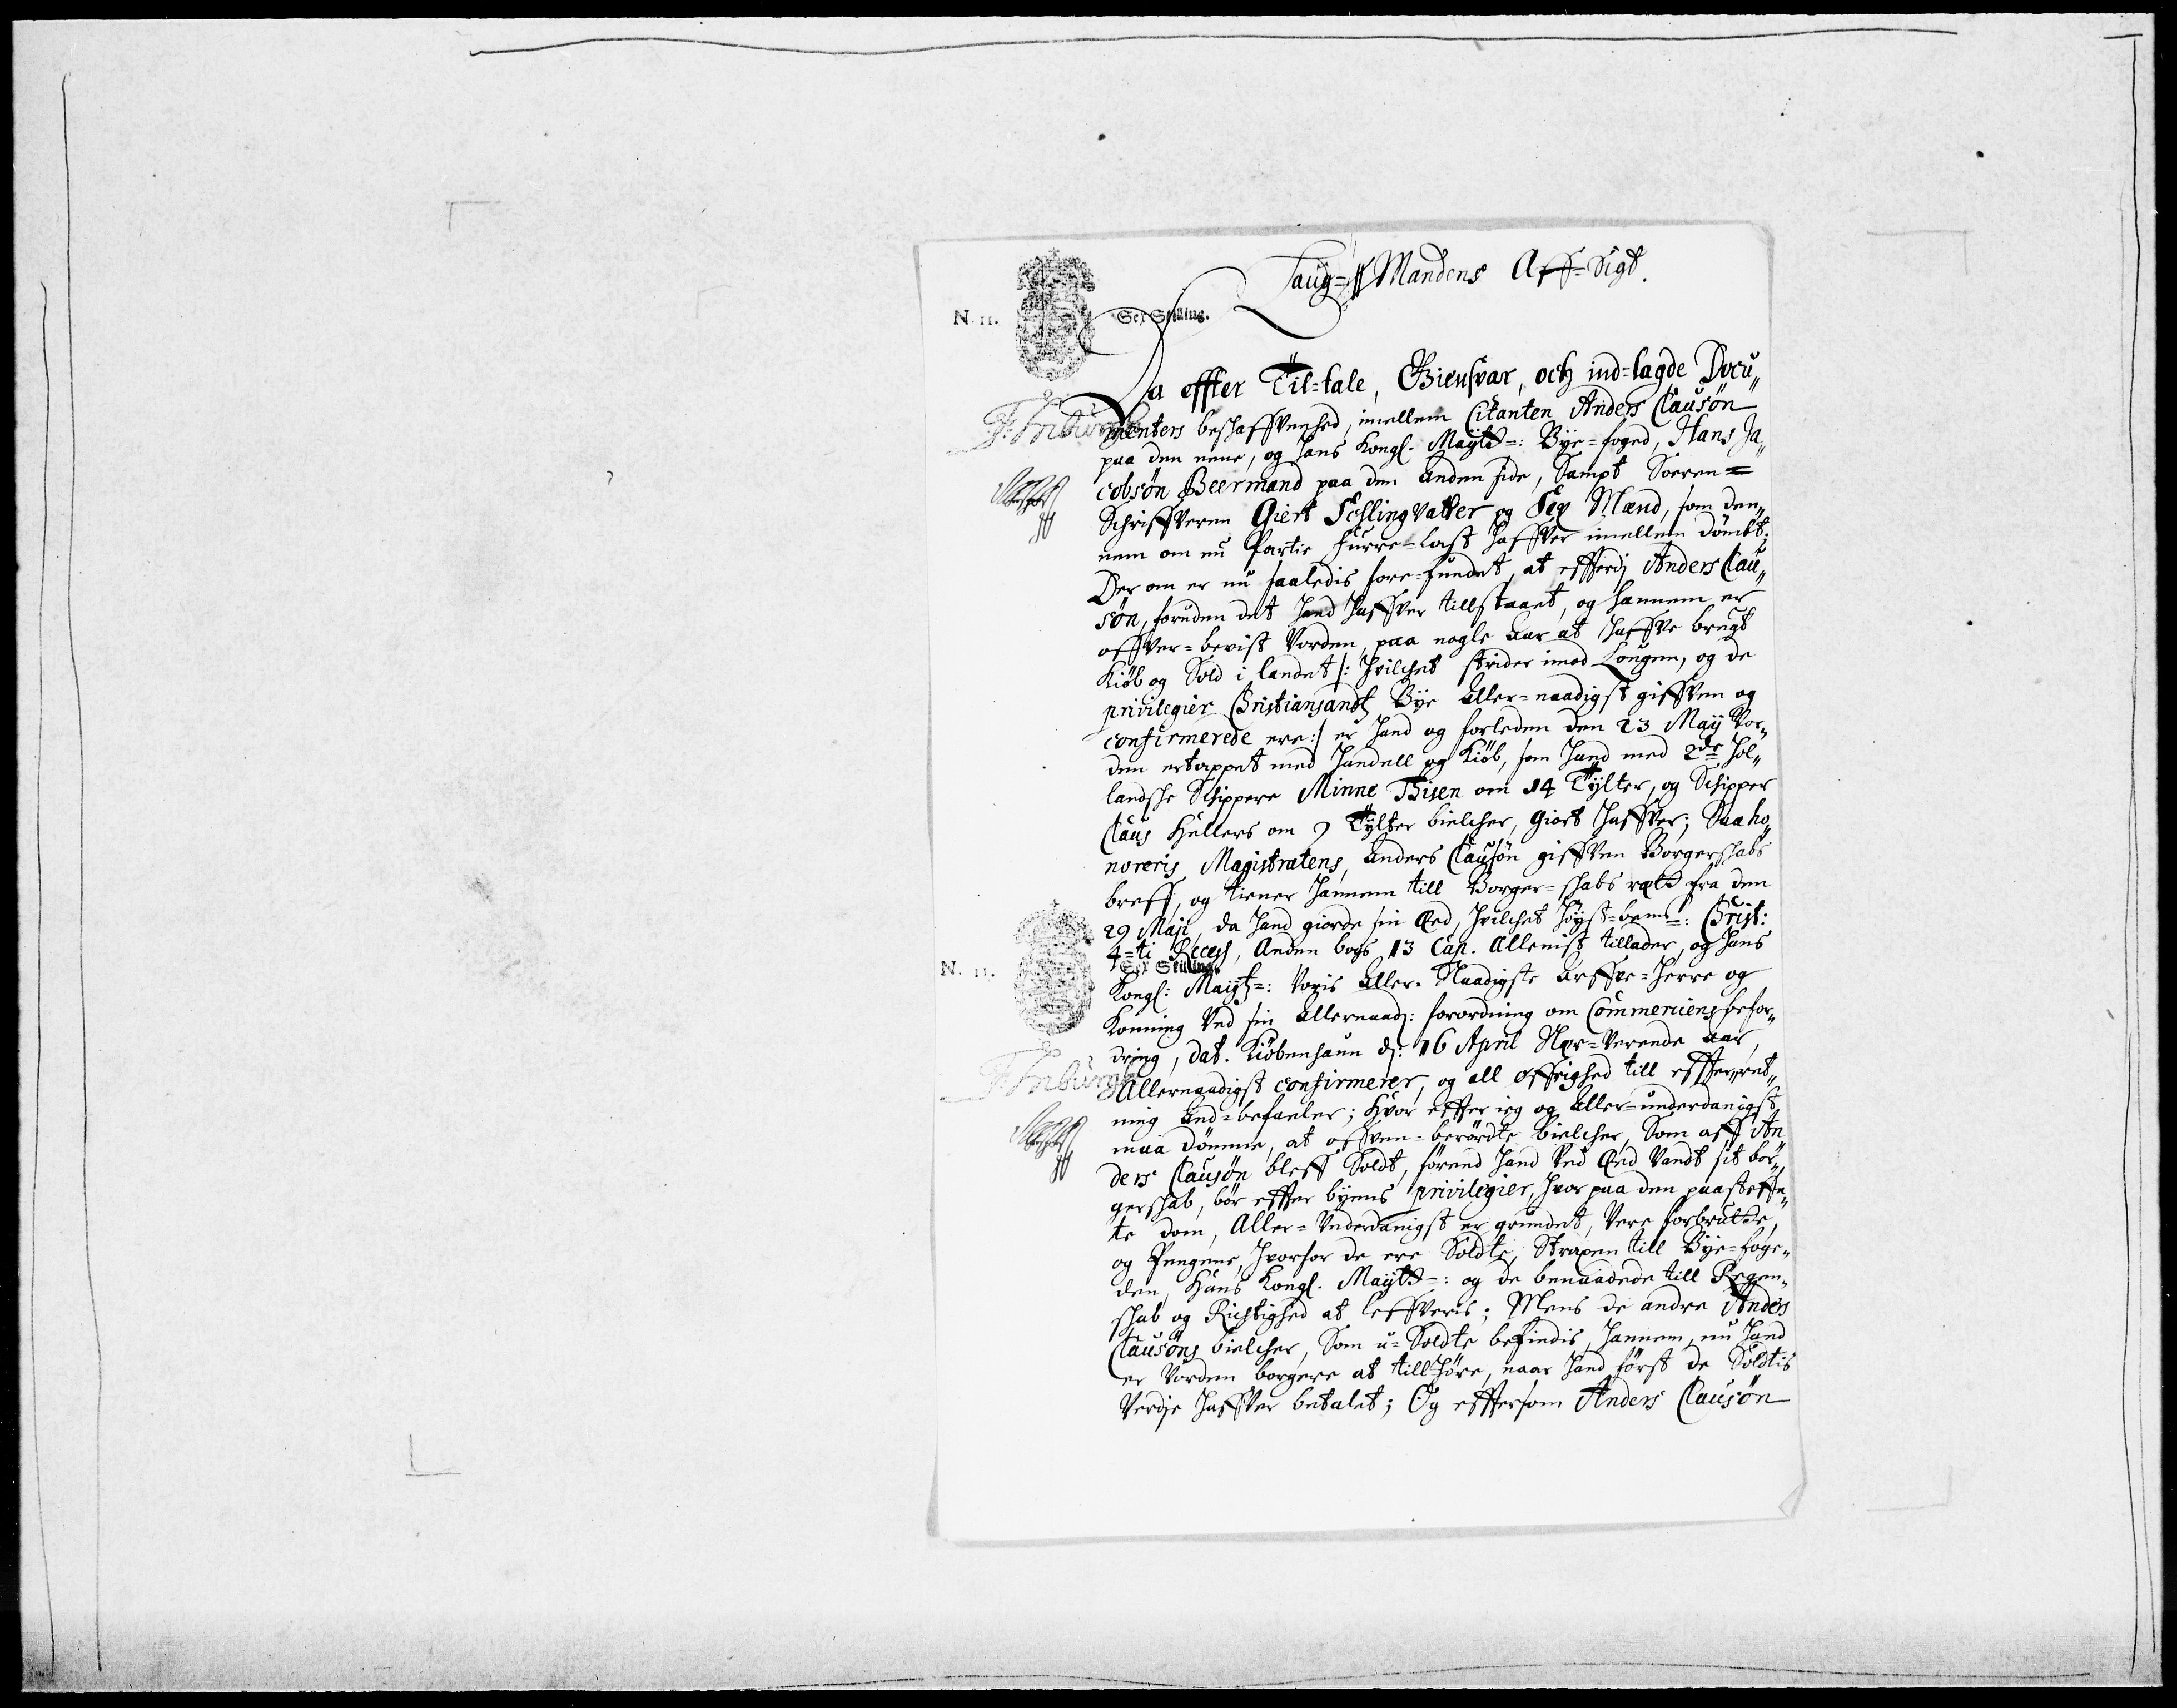 Laug-Mandens Aff-Sigt.
N. 11.
Sex Skilling.
Da effter Til-tale, Giensvar, och ind-lagde Docu„
menters beschaffvenhed, imellem Citanten Anders Clausøn
paa den eene, og Hans Kongl. Maÿtt=: Bÿe-foged, Hans Ja„
cobsøn Beermand paa den anden side, Sampt Soeren=
Schriffveren Giert Schlingvatter og Sex Mænd, som den„
nem om en Partie furre-last haffver imellem dömbt;
Der om er nu saaledis fore-fundet, at effterdj Anders Clau„
søn, foruden det hand haffver tillstaaet, og hannem er
offver-bevist Vorden, paa nogle aar at haffve brugt
Kiøb og Sold i landet /: hvilchet strider imod Lougen, og de
privilegier Christiansandtz Bÿe aller-naadigst giffven og
confirmerede ere :/ er hand og forleden den 23 Maÿ Vor„
den ertappet med handell og Kiøb, som hand med 2de hol„
landsche Schippere Minne Tbisen om 14 Tÿlter, og Schipper
Claus Hellers om 9 Tÿlter bielcher, giort haffver; Saa ho„
noreris Magistratens, Anders Clausøn giffven Borgerschabs
breff, og tiener hannem till Borger-schabs rætt fra den
29 Maji, da hand giorde sin Eed, hvilchet høÿst-bemt: Christ:
4=ti Recess, Anden bogs 13 Cap. allenist tillader, og hans
N. 11.
Sex Skilling.
Kongl: Maÿtz=: Voris aller-Naadigste arffve-herre og
Konning Ved sin allernaad: forordning om Commerciens befor„
dring, dat. Kiøbenhaun d: 16 April Nær-Verende aar,
Allernaadigst confirmerer, og all øffrighed till effterret„
ning and-befaeler; Hvor effter ieg og aller-underdanigst
maa dømme, at offven-berørdte bielcher, Som aff An
ders Clausøn bleff Soldt, førend hand Ved Eed Vandt sit bor„
gerschab, bør effter bÿens privilegier, hvor paa den paasteffn„
te dom, Aller-Underdanigst er grundet, Vere forbrutte,
og Pengene, hvorfor de ere Soldte, Straxen till Bÿe-foge„
den, Hans Kongl. Maÿtt=: og de benaadede till Regen„
schab og Richtighed at leffveris; Mens de andre Anders
Clausøns bielcher, Som u-Soldte befindis, hannem, nu hand
er Vorden borgere at tillhøre, naar hand først de Soldtis
Verdje haffver betalet; Og efftersom Anders Clausøn